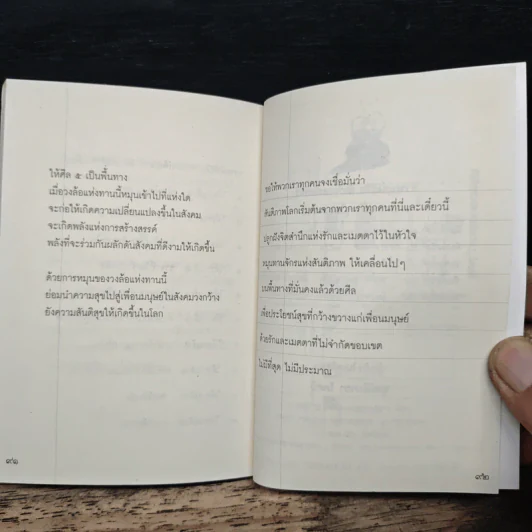 ให้ศีล ๕ เป็นพื้นทาง
เมื่อวงล้อแห่งทานนี้หมุนเข้าไปที่แห่งใด
จะก่อให้เกิดความเปลี่ยนแปลงขึ้นในสังคม
จะเกิดพลังแห่งการสร้างสรรค์
พลังที่จะร่วมกันผลักดันสังคมที่ดีงามให้เกิดขึ้น
ด้วยการหมุนของวงล้อแห่งทานนี้
ย่อมนำความสุขไปสู่เพื่อนมนุษย์ในสังคมวงกว้าง
ยังความสันติสุขให้เกิดขึ้นในโลก
๙๑
ขอให้พวกเราทุกคนจงเชื่อมั่นว่า
สันติภาพโลกเริ่มต้นจากพวกเราทุกคนที่นี่และเดี๋ยวนี้
ปลูกฝังจิตสำนึกแห่งรักและเมตตาไว้ในหัวใจ
หมุนทานจักรแห่งสันติภาพ ให้เคลื่อนไปๆ
บนพื้นทางที่มั่นคงแล้วด้วยศีล
เพื่อประโยชน์สุขที่กว้างขวางแก่เพื่อนมนุษย์
ด้วยรักและเมตตาที่ไม่จำกัดขอบเขต
ไม่มีที่สุด ไม่มีประมาณ
๙๒